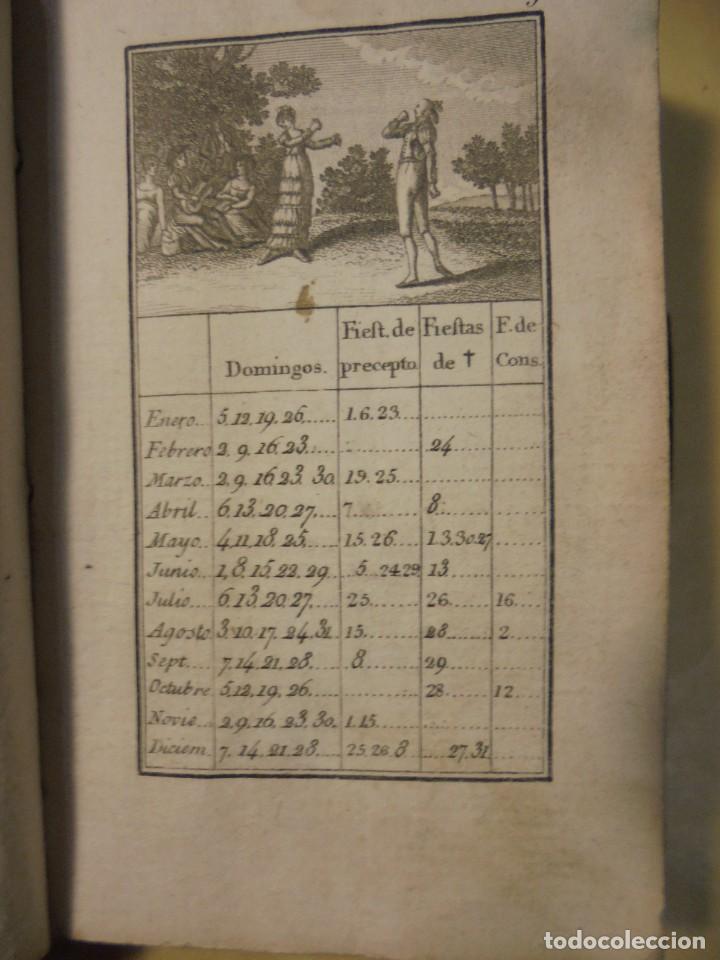 Domingos. Fiest. de precepto Fiestas de † F. de Cons.
Enero... 5, 12, 19, 26...... 1. 6. 23...
Febrero 2, 9. 16, 23...... 24...
Marzo.. 2, 9. 16 23. 30. 19. 25...
Abril... 6. 13. 20. 27.... 7... 8...
Mayo... 4, 11, 18, 25..... 15. 26.... 1. 3. 30. 27
Junio... 1, 8. 15, 22, 29 5. 24. 29 13...
Julio... 6. 13, 20, 27.... 25... 26... 16...
Agosto 3, 10. 17, 24, 31 15... 28... 2...
Sept.... 7. 14, 21, 28.... 8... 29...
Octubre 5, 12, 19, 26..... 28... 12...
Novie... 2, 9, 16, 23, 30. 1. 15...
Diciem. 7. 14, 21. 28.... 25. 26 8 27. 31
todocoleccion
todocoleccion.net